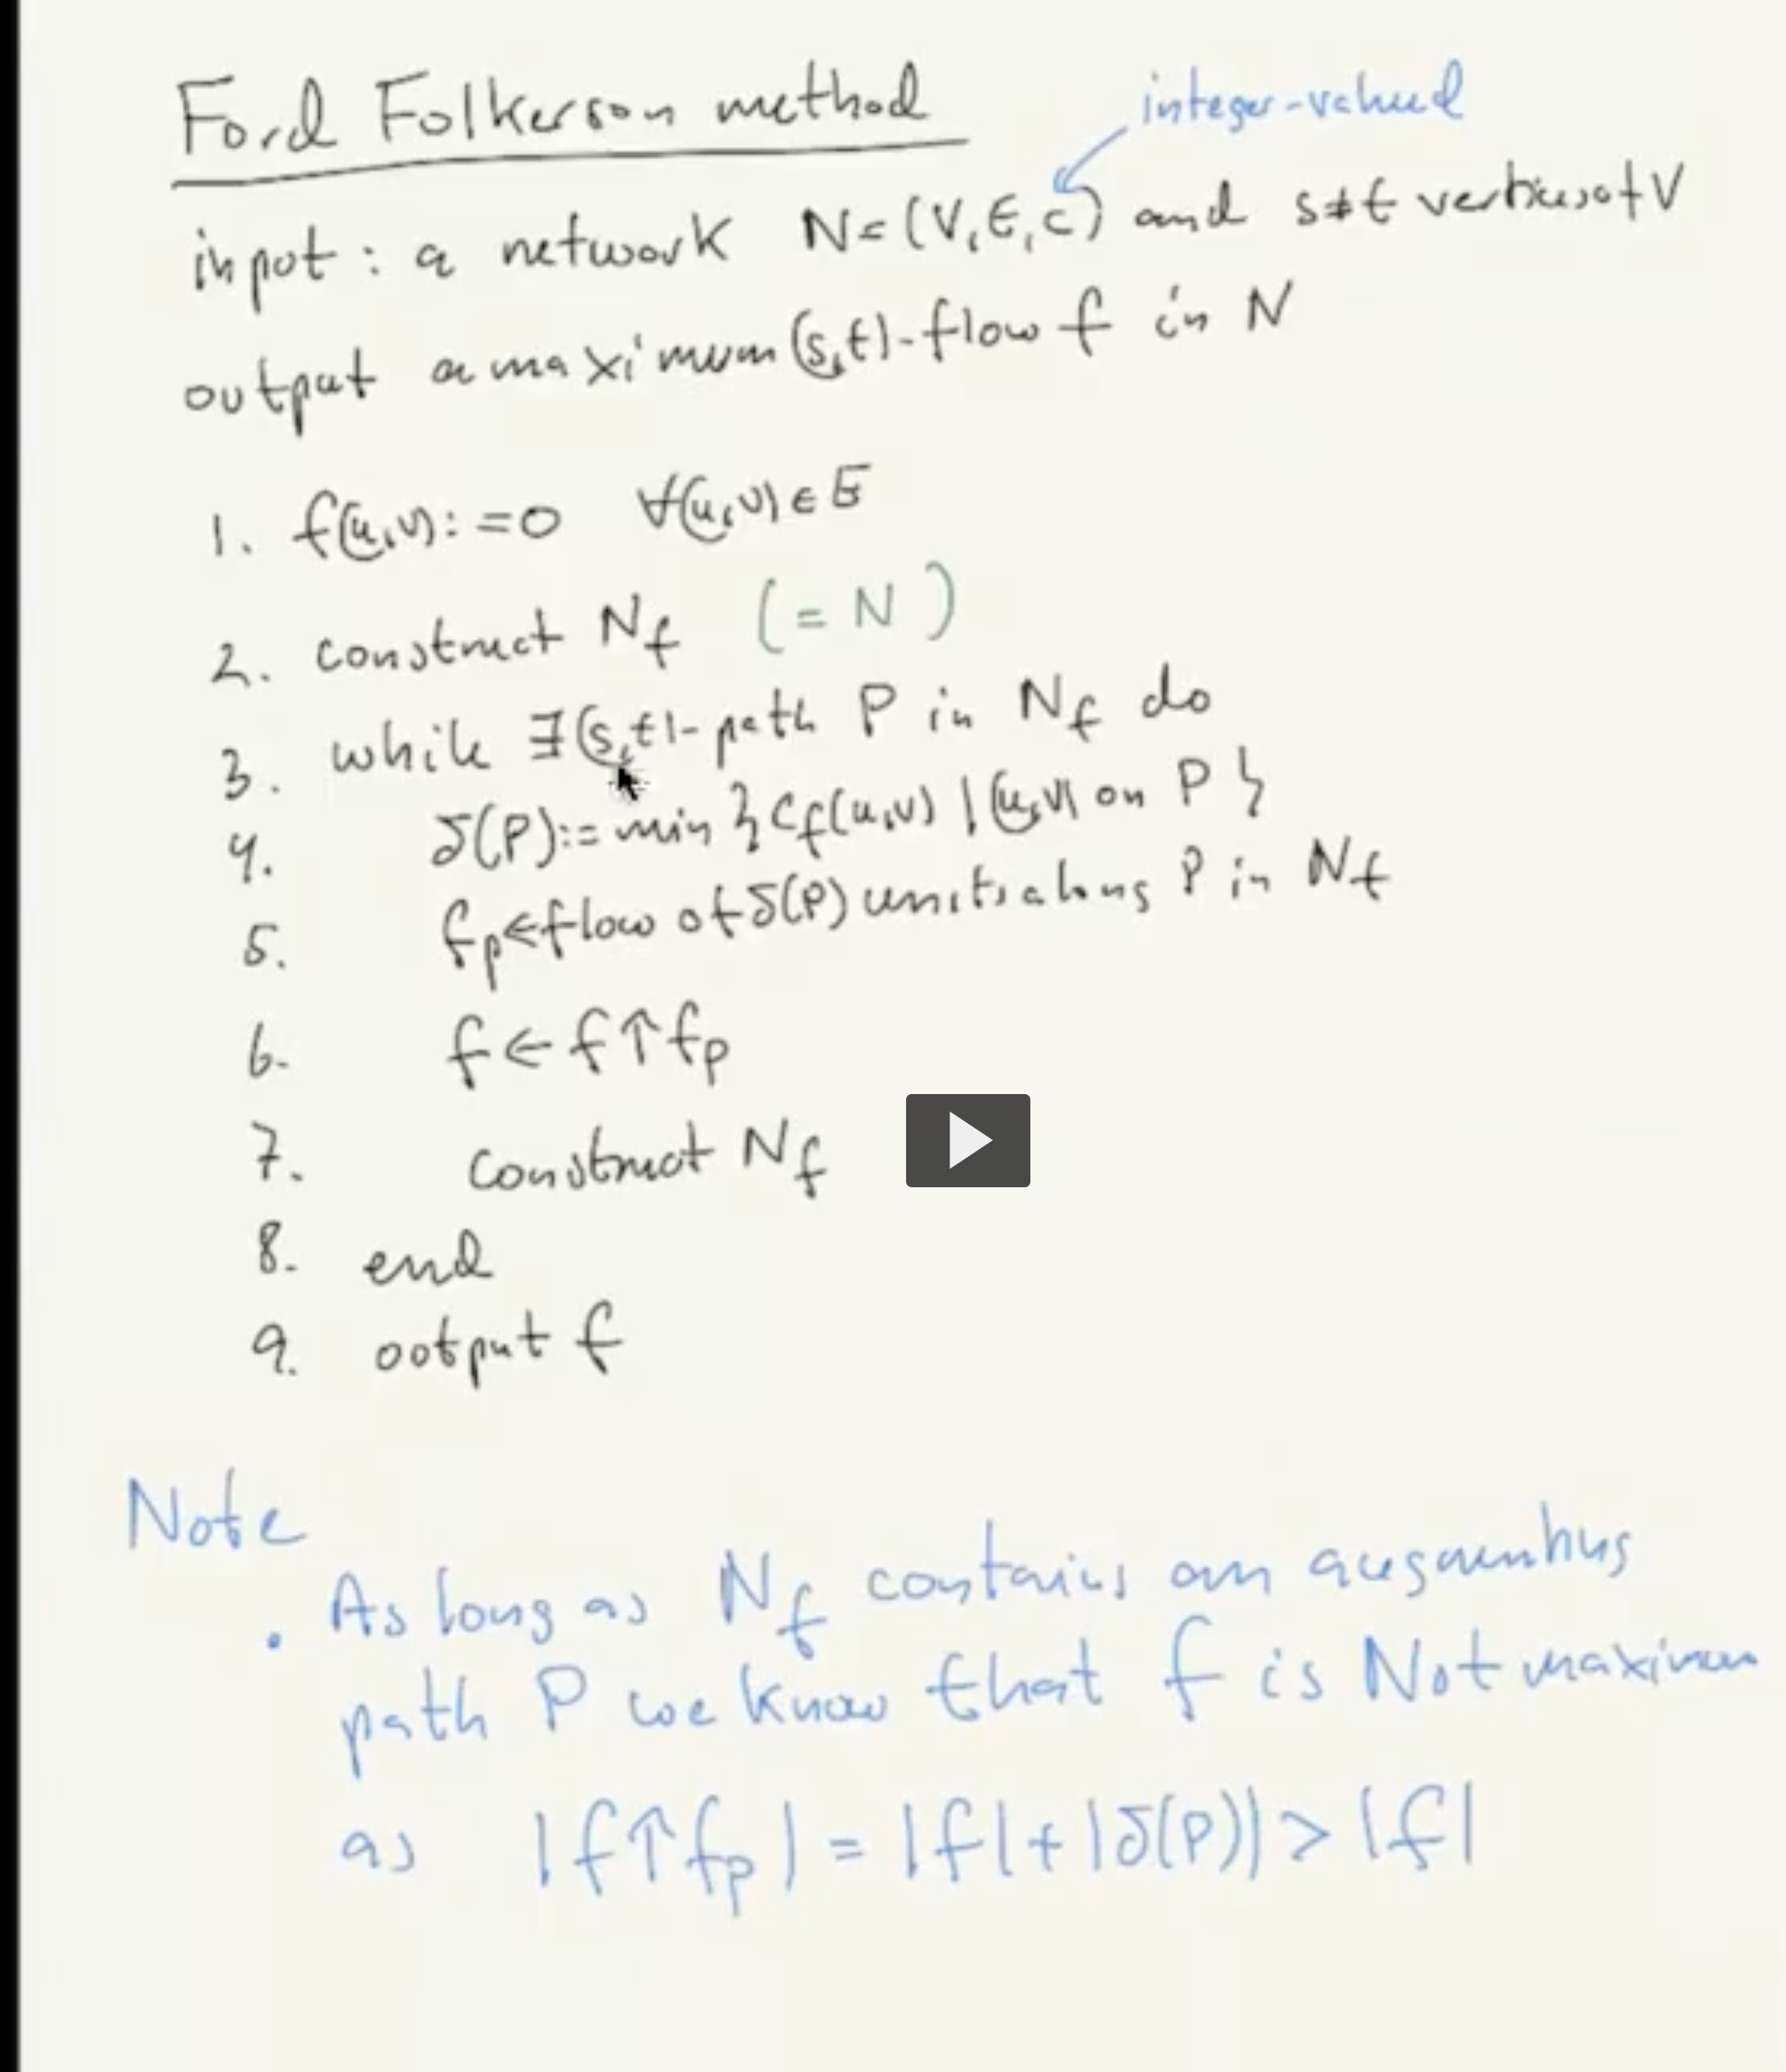 Ford Folkerson method
integer-valued
input : a network N=(V,E,c) and s≠t vertices of V
output a maximum (s,t)-flow f in N
1. f(u,v):=0 ∀(u,v)∈E
2. construct N_f (=N)
3. while ∃(s,t)-path P in N_f do
4. δ(P):=min{c_f(u,v) | (u,v) on P}
5. f_p←flow of δ(P) units along P in N_f
6. f←f↑f_p
7. construct N_f
8. end
9. output f
Note
• As long as N_f contains an augmenting
path P we know that f is Not maximum
as |f↑f_p| = |f|+|δ(P)| > |f|